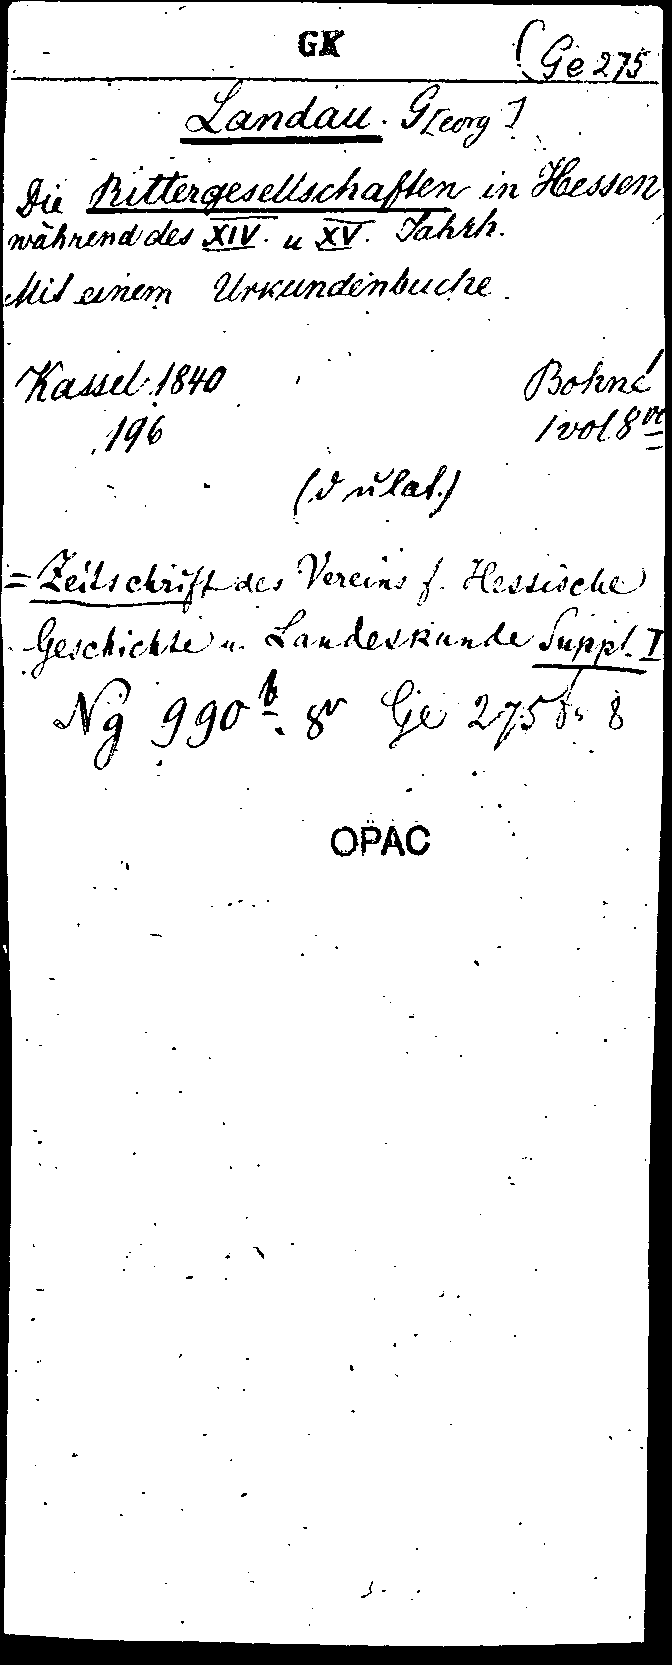 GK (Ge 275
Landau. G[eorg]
Die Rittergesellschaften in Hessen
während des XIV. u XV. Jahrh.
Mit einem Urkundenbuche.
Kassel 1840 Bohné
196 1 vol 8vo
(d u lat.)
= Zeitschrift des Vereins f. Hessische
Geschichte u. Landeskunde Suppl. I
Ng 990 b. 8v Ge 275 8
OPAC